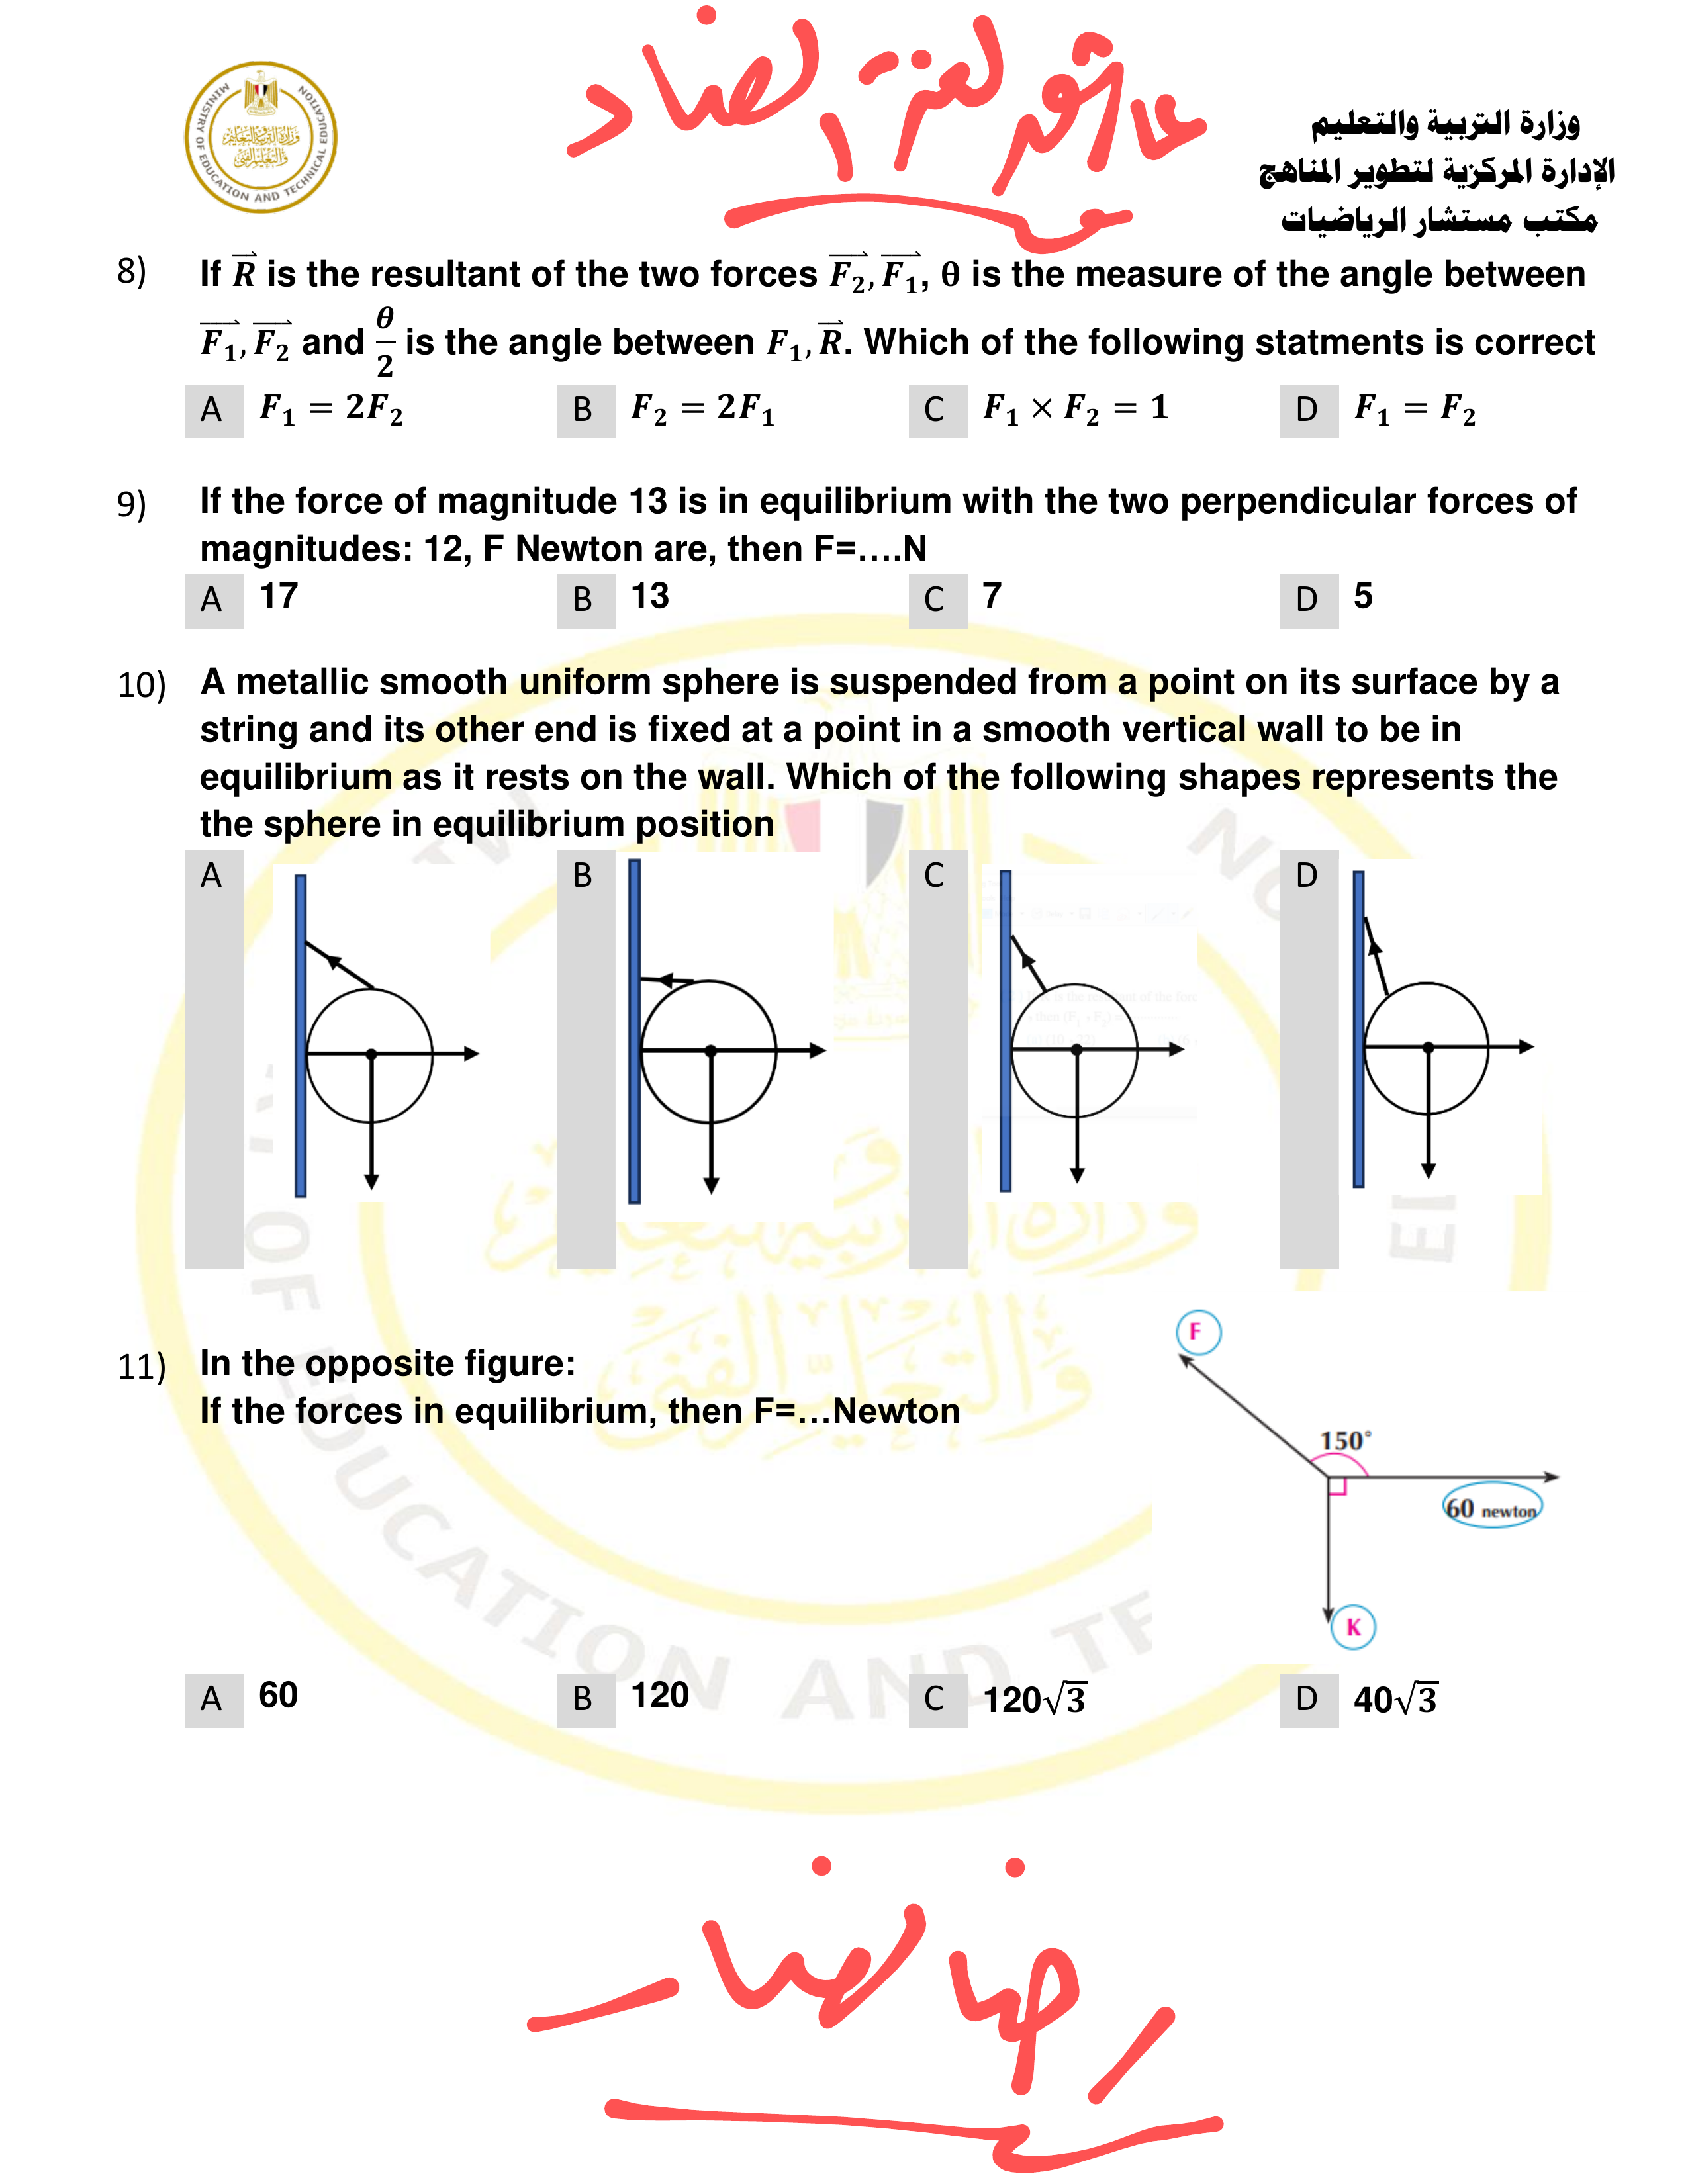 عاشور لغة الضاد
MINISTRY OF EDUCATION AND TECHNICAL EDUCATION
وزارة التربية والتعليم
والتعليم الفني
وزارة التربية والتعليم
الإدارة المركزية لتطوير المناهج
مكتب مستشار الرياضيات
8) If R⃗ is the resultant of the two forces F₂⃗, F₁⃗, θ is the measure of the angle between
F₁⃗, F₂⃗ and θ/2 is the angle between F₁, R⃗. Which of the following statments is correct
A F₁ = 2F₂ B F₂ = 2F₁ C F₁ × F₂ = 1 D F₁ = F₂
9) If the force of magnitude 13 is in equilibrium with the two perpendicular forces of
magnitudes: 12, F Newton are, then F=....N
A 17 B 13 C 7 D 5
10) A metallic smooth uniform sphere is suspended from a point on its surface by a
string and its other end is fixed at a point in a smooth vertical wall to be in
equilibrium as it rests on the wall. Which of the following shapes represents the
the sphere in equilibrium position
A B C D
11) In the opposite figure:
If the forces in equilibrium, then F=...Newton
F
150°
60 newton
K
A 60 B 120 C 120√3 D 40√3